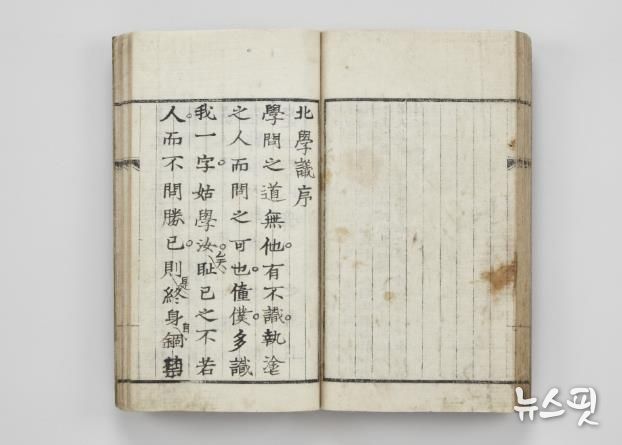 北學議序
學問之道無他。有不識。執塗
之人而問之可也。僮僕。多識
我一字。姑學汝。矣耻己之不若
人。而不問勝己。則是終身自錮
뉴스핏